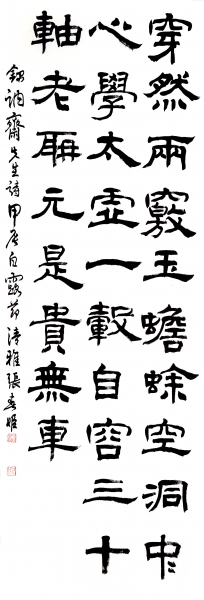 穿然兩竅玉蟾蜍空洞中
心學太虛一轂自容三十
軸老聃元是貴無車
錄訥齋先生詩甲辰白露節清雅張春